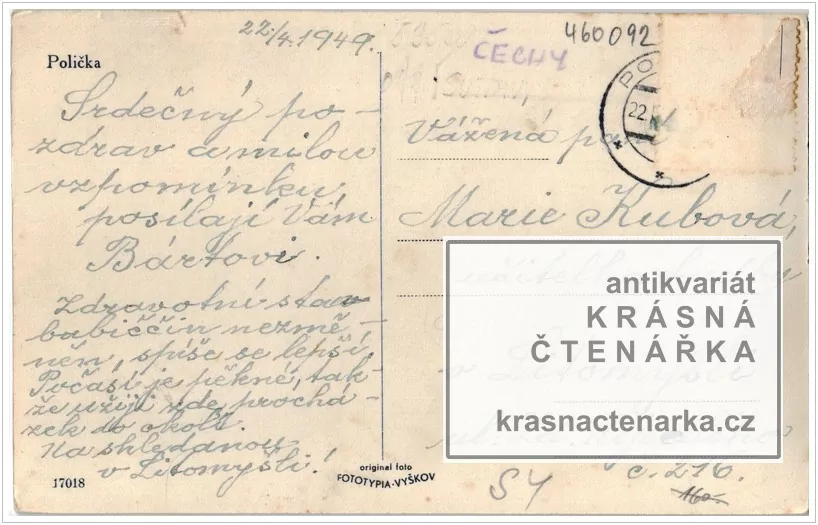 22./4.1949.
460092
ČECHY
Polička
PO
22.
Srdečný po-
zdrav a milou
vzpomínku
posílají Vám
Bártovi.
Zdravotní stav
babiččin nezmě-
něn, spíše se lepší.
Počasí je pěkné, tak-
že užiji zde prochá-
zek do okolí.
Na shledanou
v Litomyšli!
17018
original foto
FOTOTYPIA-VYŠKOV
Vážená paní
Marie Kubová,
učitelka
v Litomyšli
č. 216.
antikvariát
KRÁSNÁ
ČTENÁŘKA
krasnactenarka.cz
SY
160.-